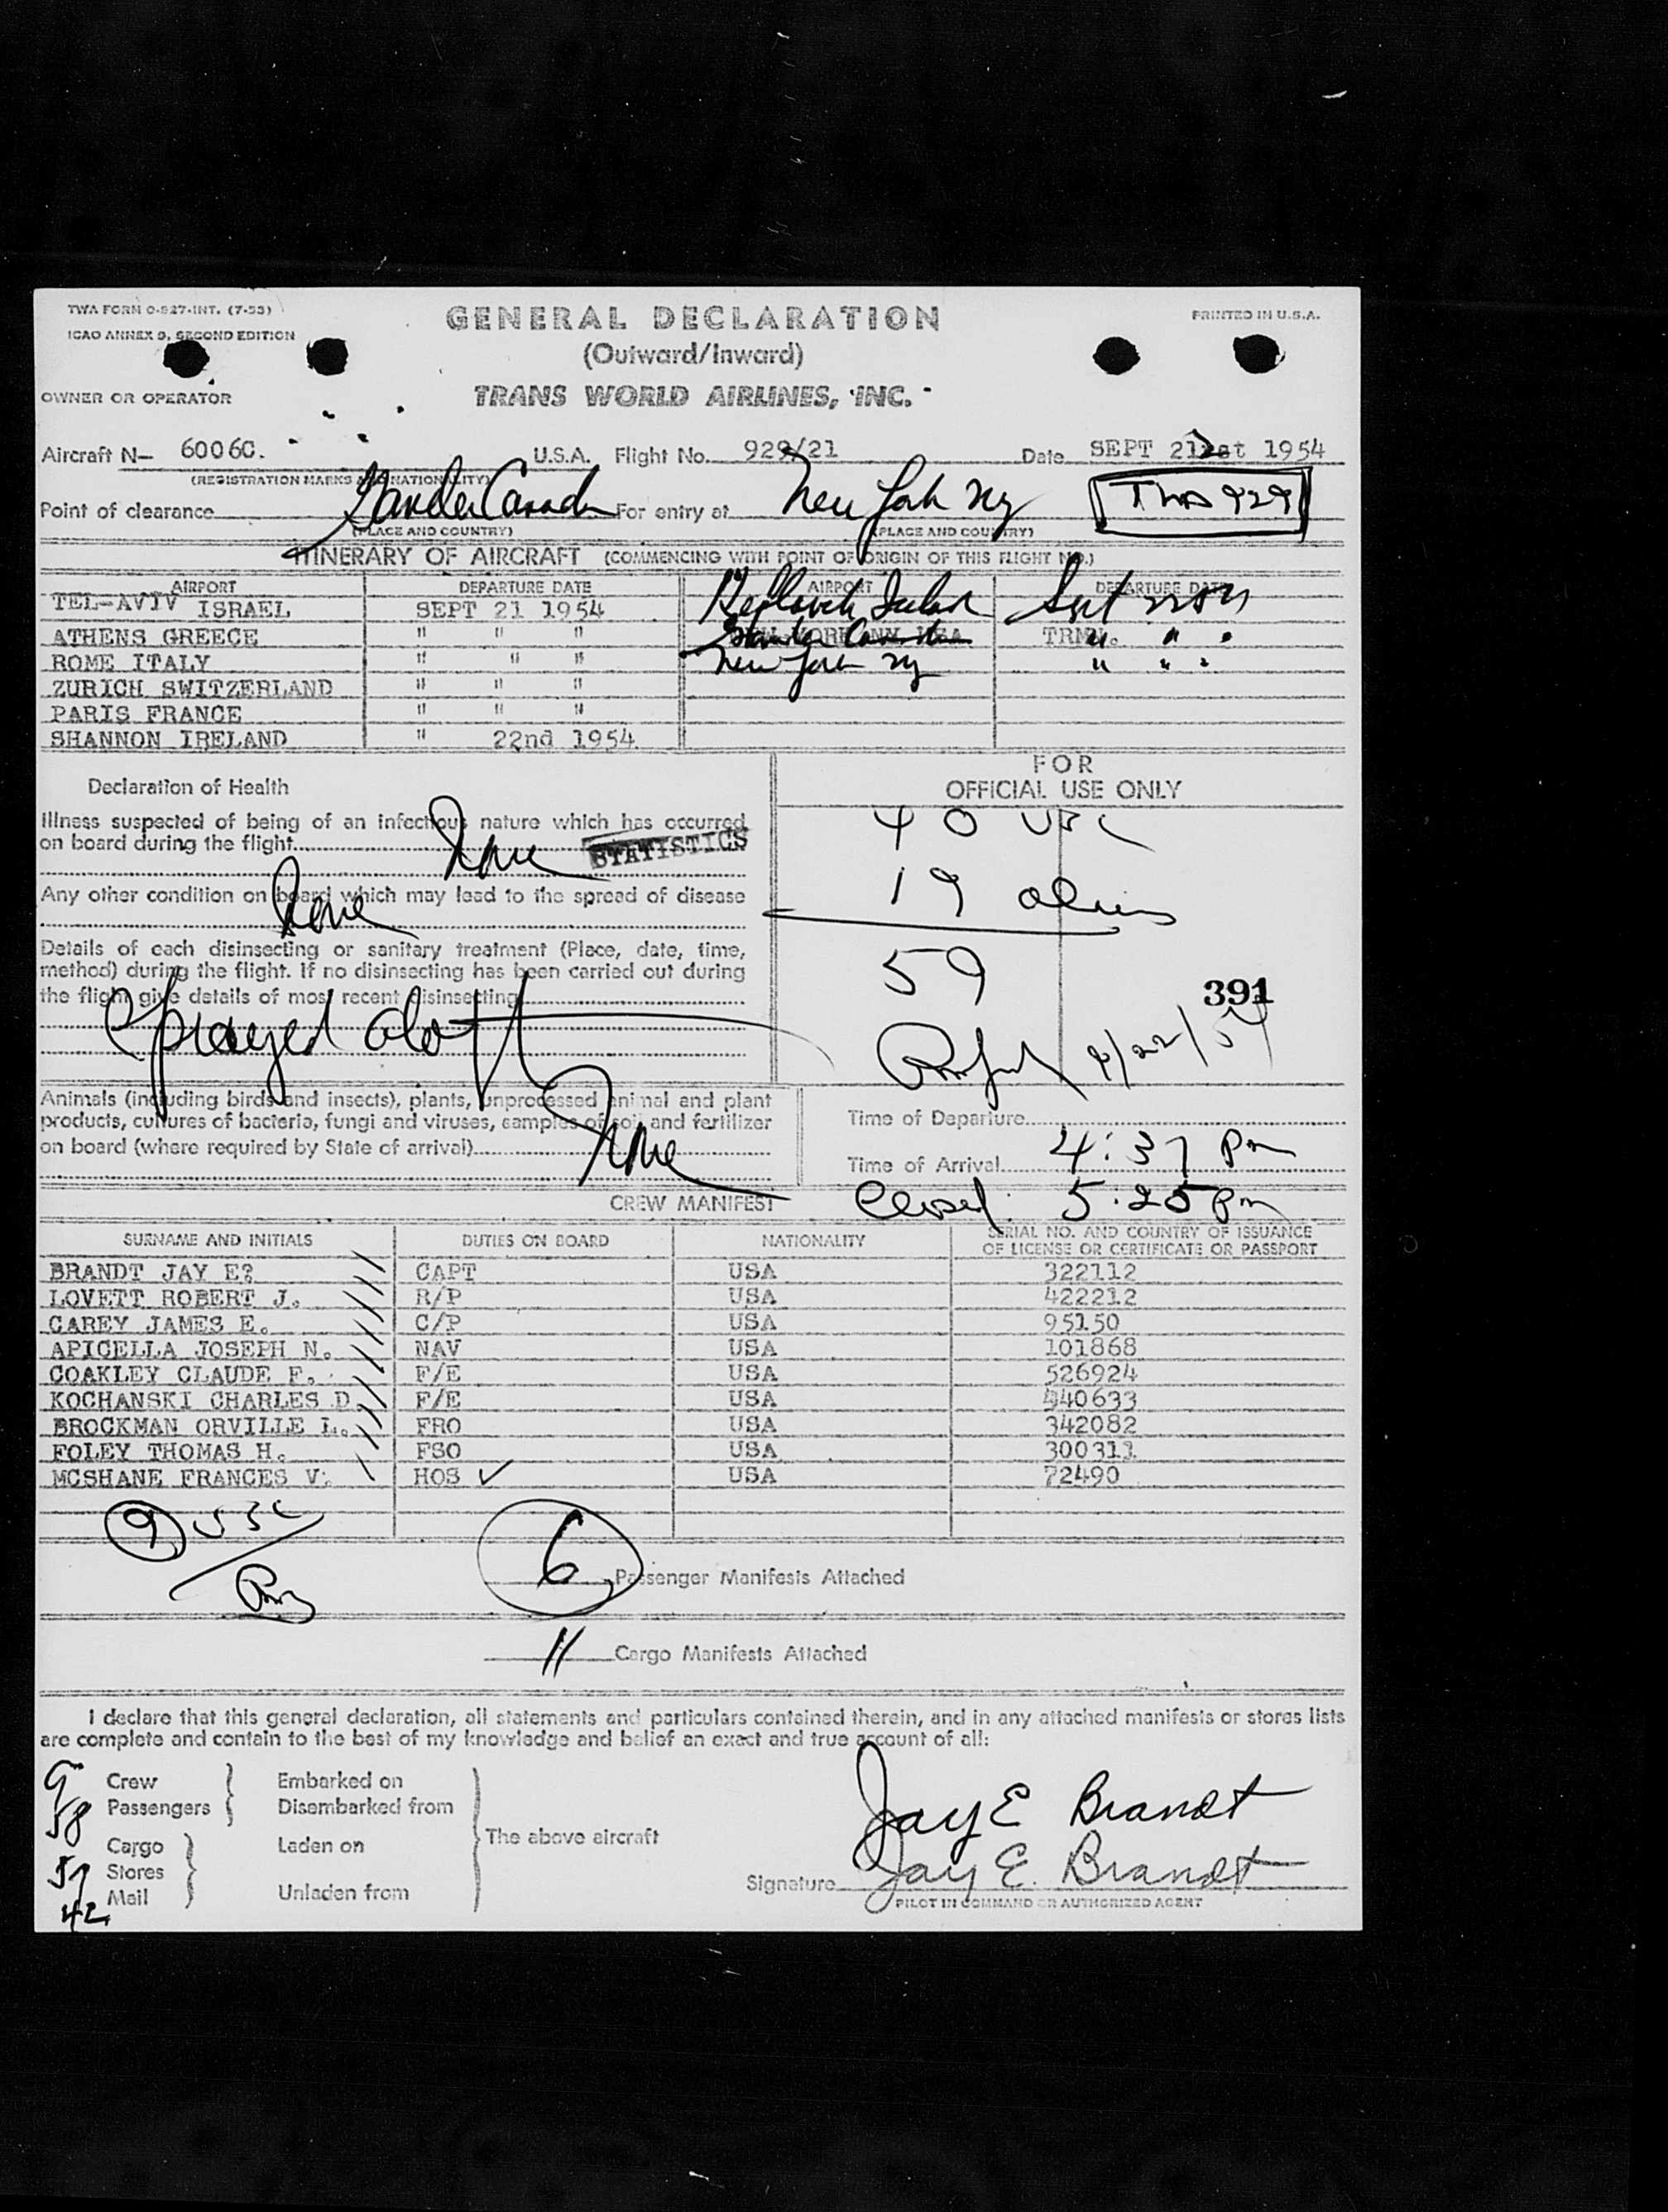 TWA FORM O-927-INT. (7-53)
ICAO ANNEX 9, SECOND EDITION
GENERAL DECLARATION
(Outward/Inward)
TRANS WORLD AIRLINES, INC.
PRINTED IN U.S.A.
OWNER OR OPERATOR
Aircraft N- 6006C. U.S.A. Flight No. 929/21 Date SEPT 1954
(REGISTRATION MARKS AND NATIONALITY)
Point of clearance Gander Canada For entry at New York NY TWA 929
(PLACE AND COUNTRY) (PLACE AND COUNTRY)
ITINERARY OF AIRCRAFT (COMMENCING WITH POINT OF ORIGIN OF THIS FLIGHT NO.)
AIRPORT DEPARTURE DATE AIRPORT DEPARTURE DATE
TEL-AVIV ISRAEL SEPT 21 1954
ATHENS GREECE " " " Gander Canada " " "
ROME ITALY " " " New York NY " " "
ZURICH SWITZERLAND " " "
PARIS FRANCE " " "
SHANNON IRELAND " 22nd 1954
Declaration of Health
Illness suspected of being of an infectious nature which has occurred
on board during the flight None
STATISTICS
Any other condition on board which may lead to the spread of disease
None
Details of each disinsecting or sanitary treatment (Place, date, time,
method) during the flight. If no disinsecting has been carried out during
the flight give details of most recent disinsecting
Sprayed aloft
FOR
OFFICIAL USE ONLY
40 USC
19 aliens
59
391
9/22/54
Animals (including birds and insects), plants, unprocessed animal and plant
products, cultures of bacteria, fungi and viruses, samples of soil and fertilizer
on board (where required by State of arrival) None
Time of Departure
Time of Arrival 4:37 pm
Closed: 5:25 pm
CREW MANIFEST
SURNAME AND INITIALS DUTIES ON BOARD NATIONALITY SERIAL NO. AND COUNTRY OF ISSUANCE
OF LICENSE OR CERTIFICATE OR PASSPORT
BRANDT JAY E? CAPT USA 322112
LOVETT ROBERT J. R/P USA 422212
CAREY JAMES E. C/P USA 95150
APICELLA JOSEPH N. NAV USA 101868
COAKLEY CLAUDE F. F/E USA 526924
KOCHANSKI CHARLES D F/E USA 440633
BROCKMAN ORVILLE L. FRO USA 342082
FOLEY THOMAS H. FSO USA 300311
MCSHANE FRANCES V. HOS ✓ USA 72490
9 USC
6 Passenger Manifests Attached
11 Cargo Manifests Attached
I declare that this general declaration, all statements and particulars contained therein, and in any attached manifests or stores lists
are complete and contain to the best of my knowledge and belief an exact and true account of all:
9 Crew Embarked on
58 Passengers Disembarked from
The above aircraft
Cargo Laden on
Stores
Mail Unladen from
42
Jay E Brandt
Signature Jay E. Brandt
PILOT IN COMMAND OR AUTHORIZED AGENT